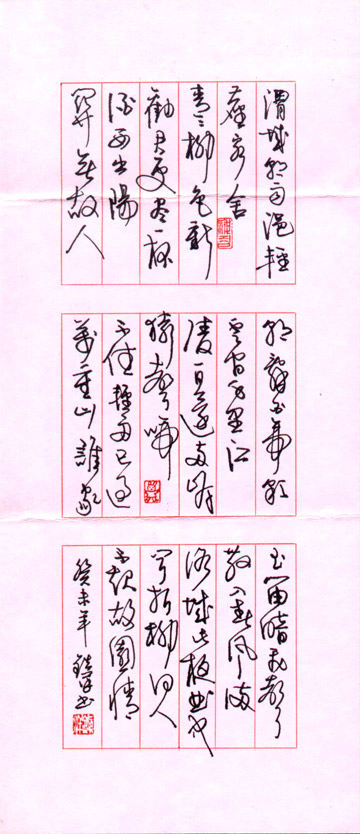 渭城朝雨浥輕
塵客舍
青青柳色新
勸君更盡一杯
酒西出陽
關無故人
朝辭白帝彩
雲間千里江
陵一日還兩岸
猿聲啼
不住輕舟已過
萬重山誰家
玉笛暗飛聲
散入春風滿
洛城此夜曲中
聞折柳何人
不起故園情
癸未年 書